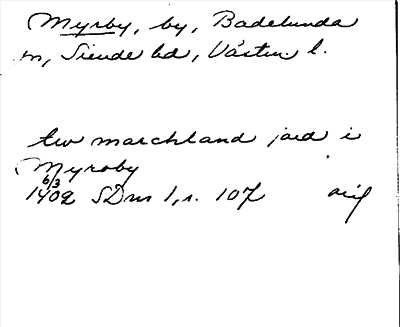 Myrby, by, Badelunda
sn, Siende hd, Västm l.
tw marchland jord i
Myroby
6/3
1402 SDns 1, s. 107 orig